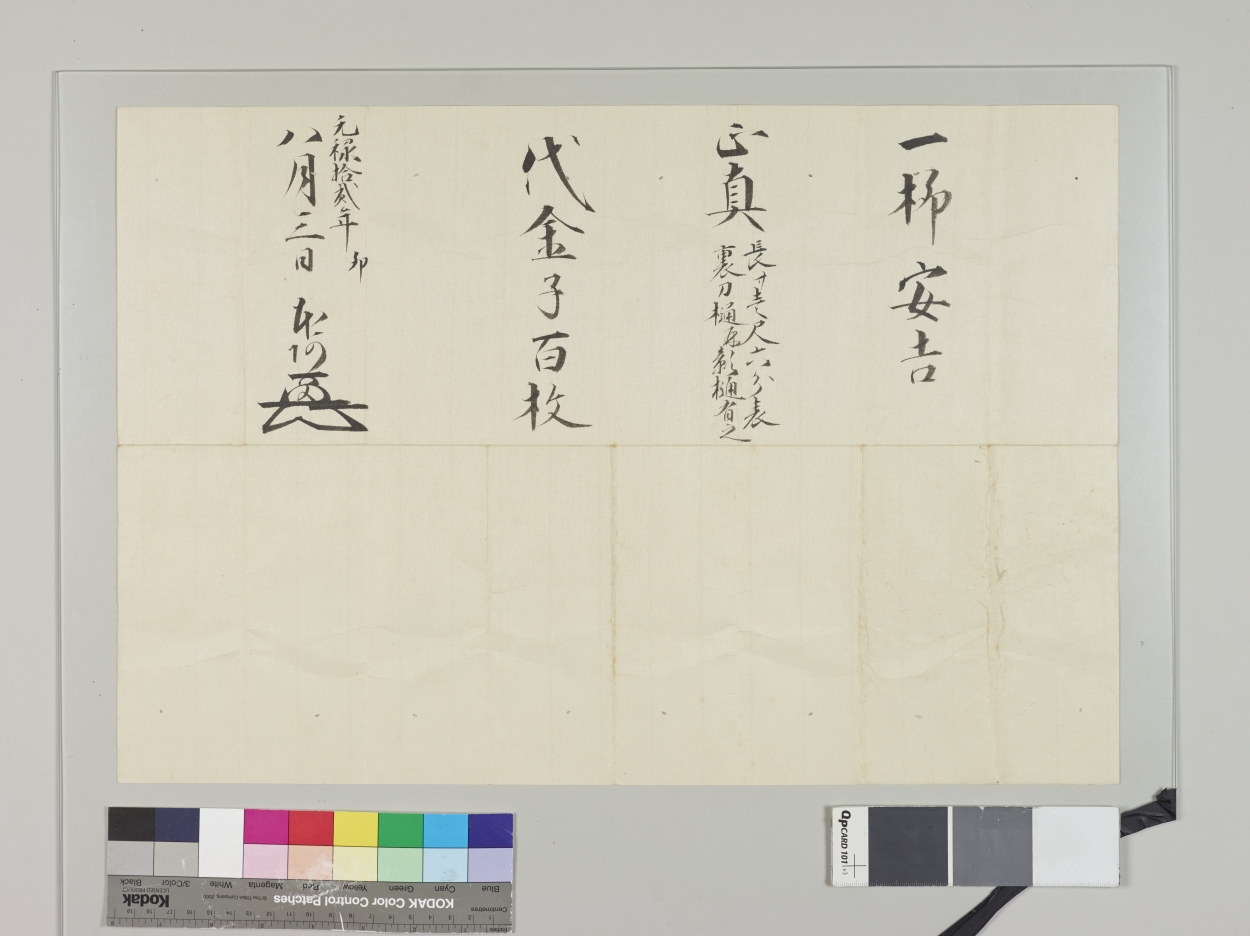 一柳安吉
正真
長サ壱尺六分表
裏刀樋添樋有之
代金子百枚
元禄拾弐年
卯
八月三日
本阿
KODAK Color Control Patches
Kodak
LICENSED PRODUCT
© The Tiffen Company, 2000
Centimetres
Inches
Blue
Cyan
Green
Yellow
Red
Magenta
White
3/Color
Black
QPCARD 101